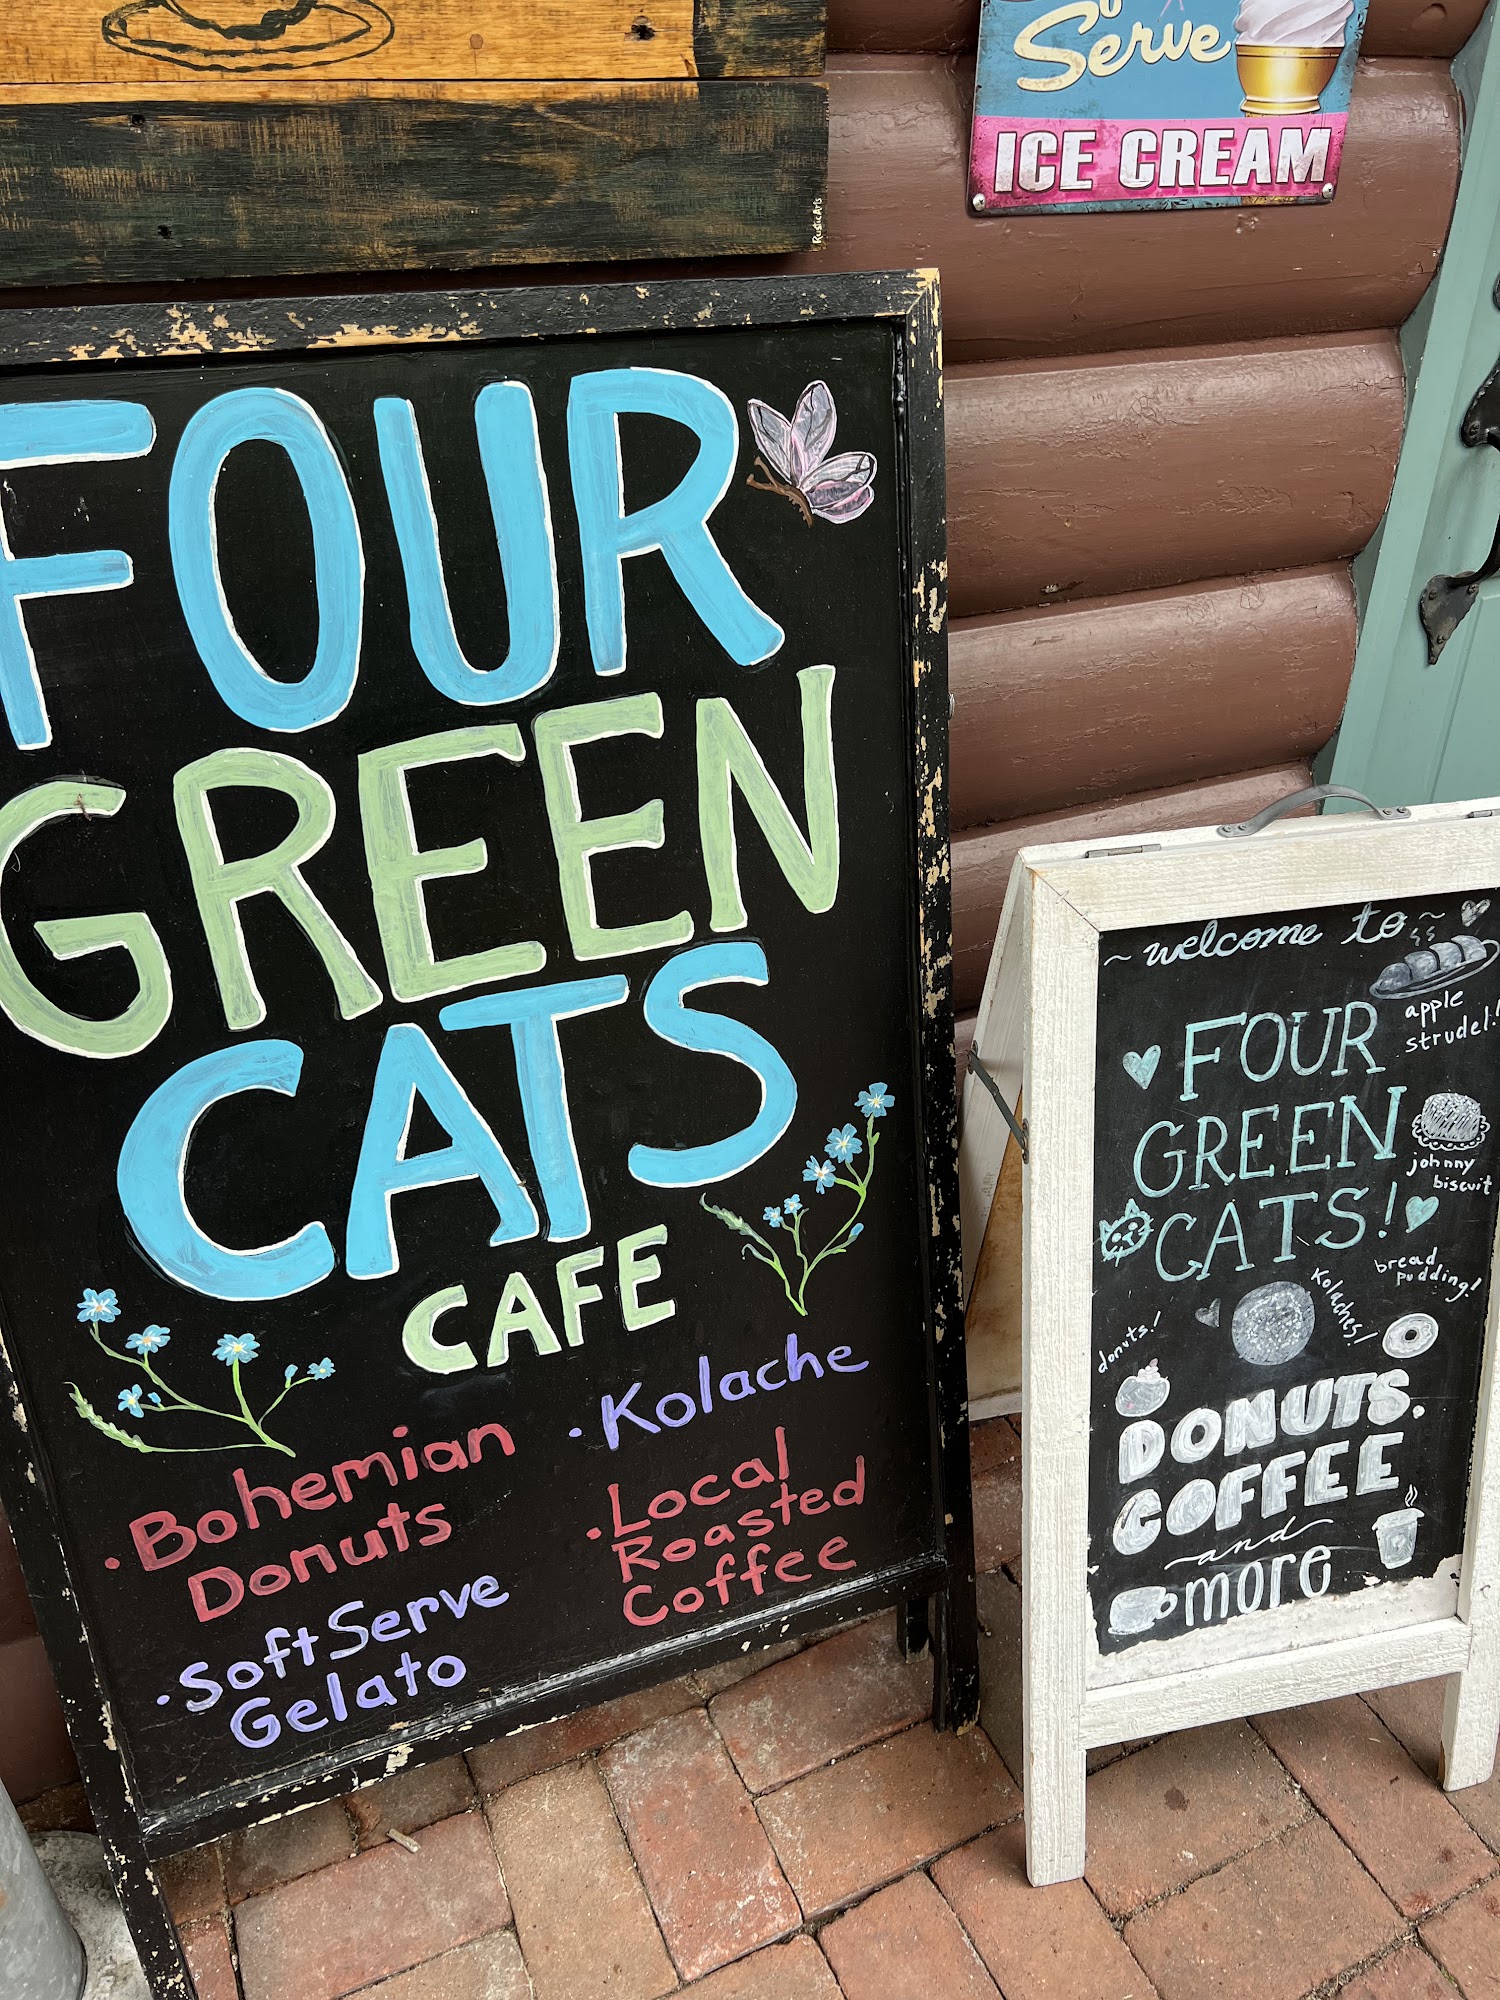 Serve
ICE CREAM
RusticArts
FOUR
GREEN
CATS
CAFE
• Bohemian
Donuts
• Soft Serve
Gelato
• Kolache
• Local
Roasted
Coffee
~ welcome to ~
apple
strudel!!
FOUR
GREEN
CATS!
johnny
biscuit
bread
pudding!
Kolaches!
donuts!
DONUTS.
COFFEE
~and~
more